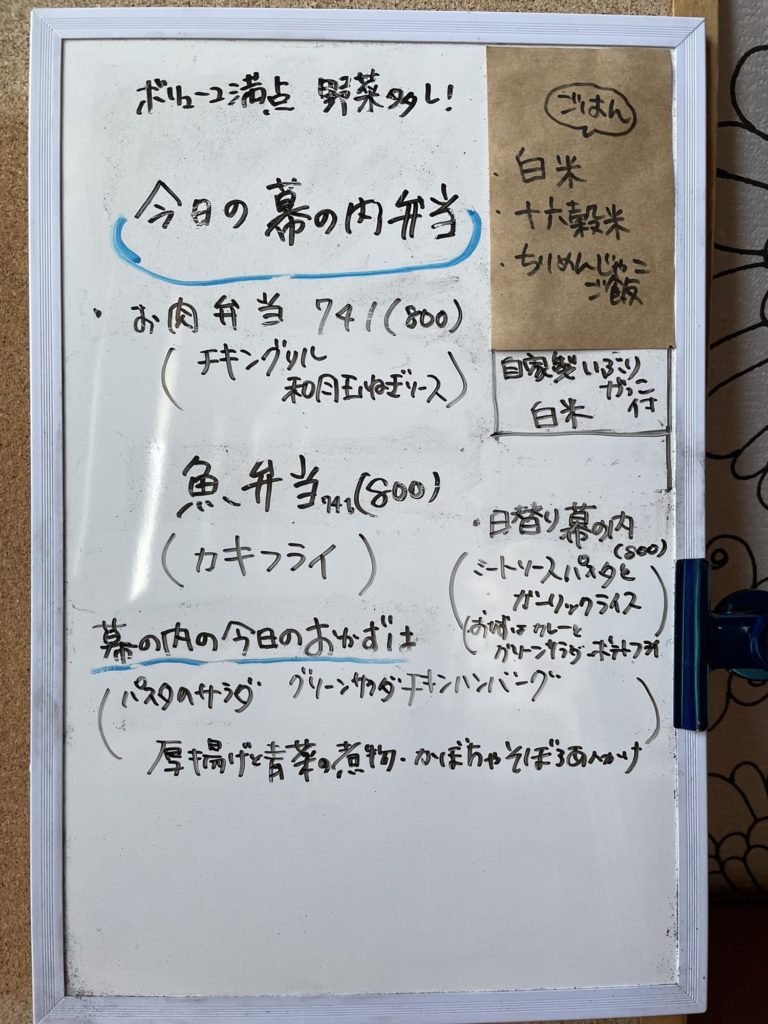 ボリューム満点 野菜タタし!
今日の幕の内弁当
・お肉弁当 741(800)
(チキングリル
和風玉ねぎソース)
魚弁当741(800)
(カキフライ)
幕の内の今日のおかずは
(パスタのサラダ グリーンサラダ チキンハンバーグ
厚揚げと青菜の煮物・かぼちゃそぼろあんかけ)
ごはん
・白米
・十六穀米
・ちりめんじゃこ
ご飯
自家製いぶり
がっこ
付
白米
・日替り幕の内
(800)
(ミートソースパスタと
ガーリックライス
(おかずは カレーと
グリーンサラダ・ポテトフライ)